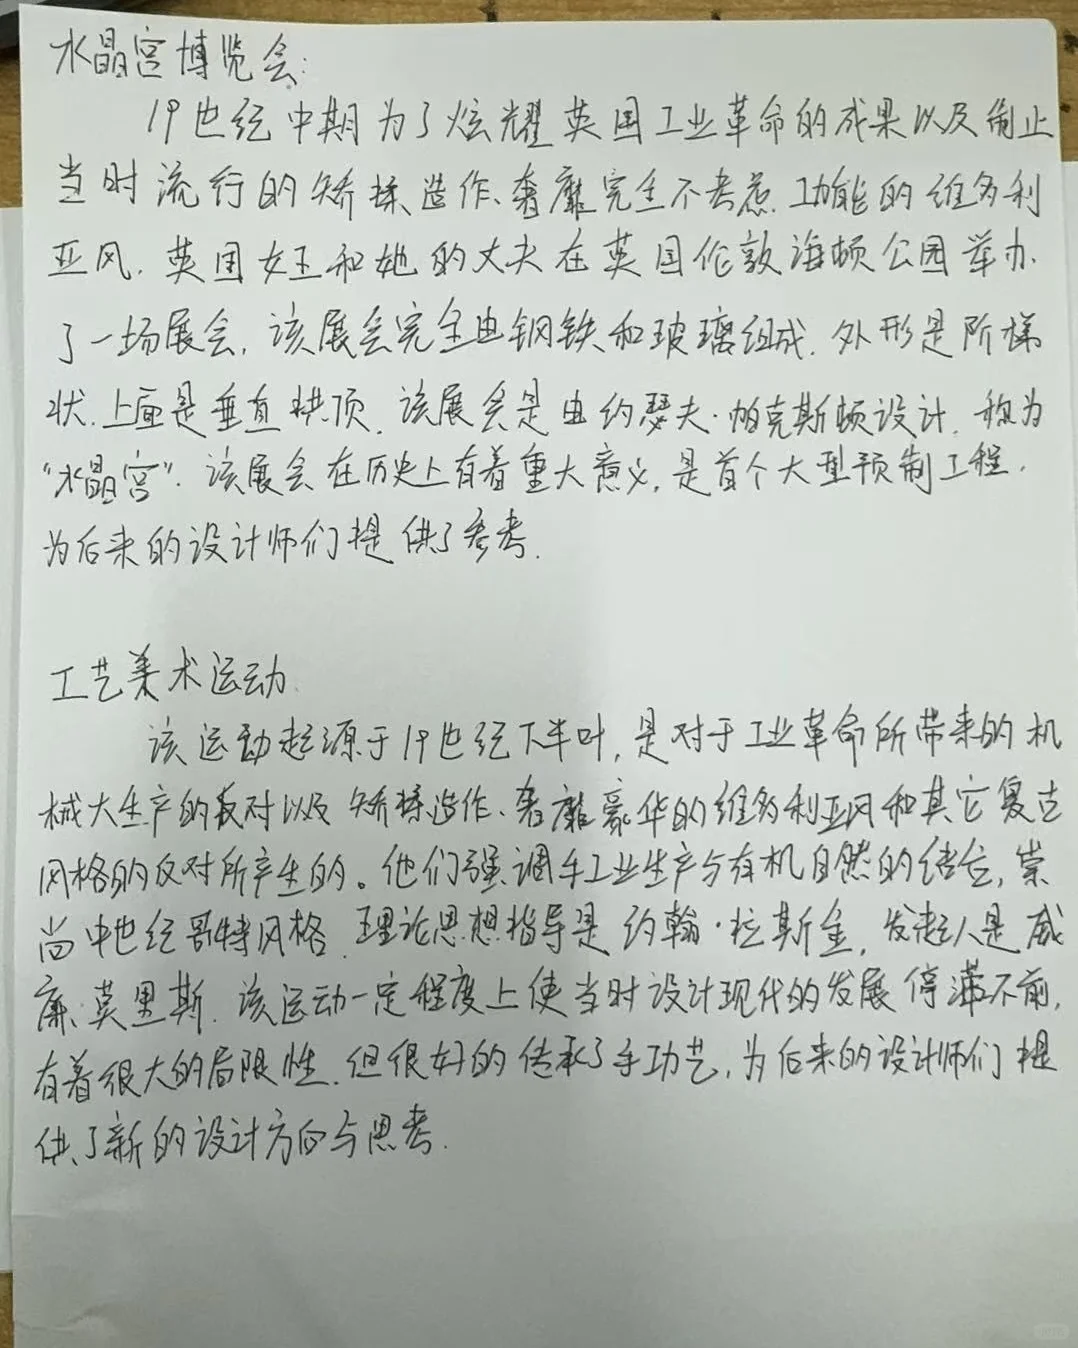 水晶宫博览会:
19世纪中期为了炫耀英国工业革命的成果以及制止
当时流行的矫揉造作、奢靡完全不考虑功能的维多利
亚风.英国女王和她的丈夫在英国伦敦海顿公园举办
了一场展会,该展会完全由钢铁和玻璃组成.外形是阶梯
状.上面是垂直拱顶.该展会是由约瑟夫·帕克斯顿设计.称为
“水晶宫”.该展会在历史上有着重大意义,是首个大型预制工程.
为后来的设计师们提供了参考.
工艺美术运动.
该运动起源于19世纪下半叶,是对于工业革命所带来的机
械大生产的反对以及矫揉造作、奢靡豪华的维多利亚风和其它复古
风格的反对所产生的。他们强调手工业生产与有机自然的结合,崇
尚中世纪哥特风格.理论思想指导是约翰·拉斯金,发起人是威
廉.莫里斯.该运动一定程度上使当时设计现代的发展停滞不前,
有着很大的局限性.但很好的传承了手功艺,为后来的设计师们提
供了新的设计方向与思考.